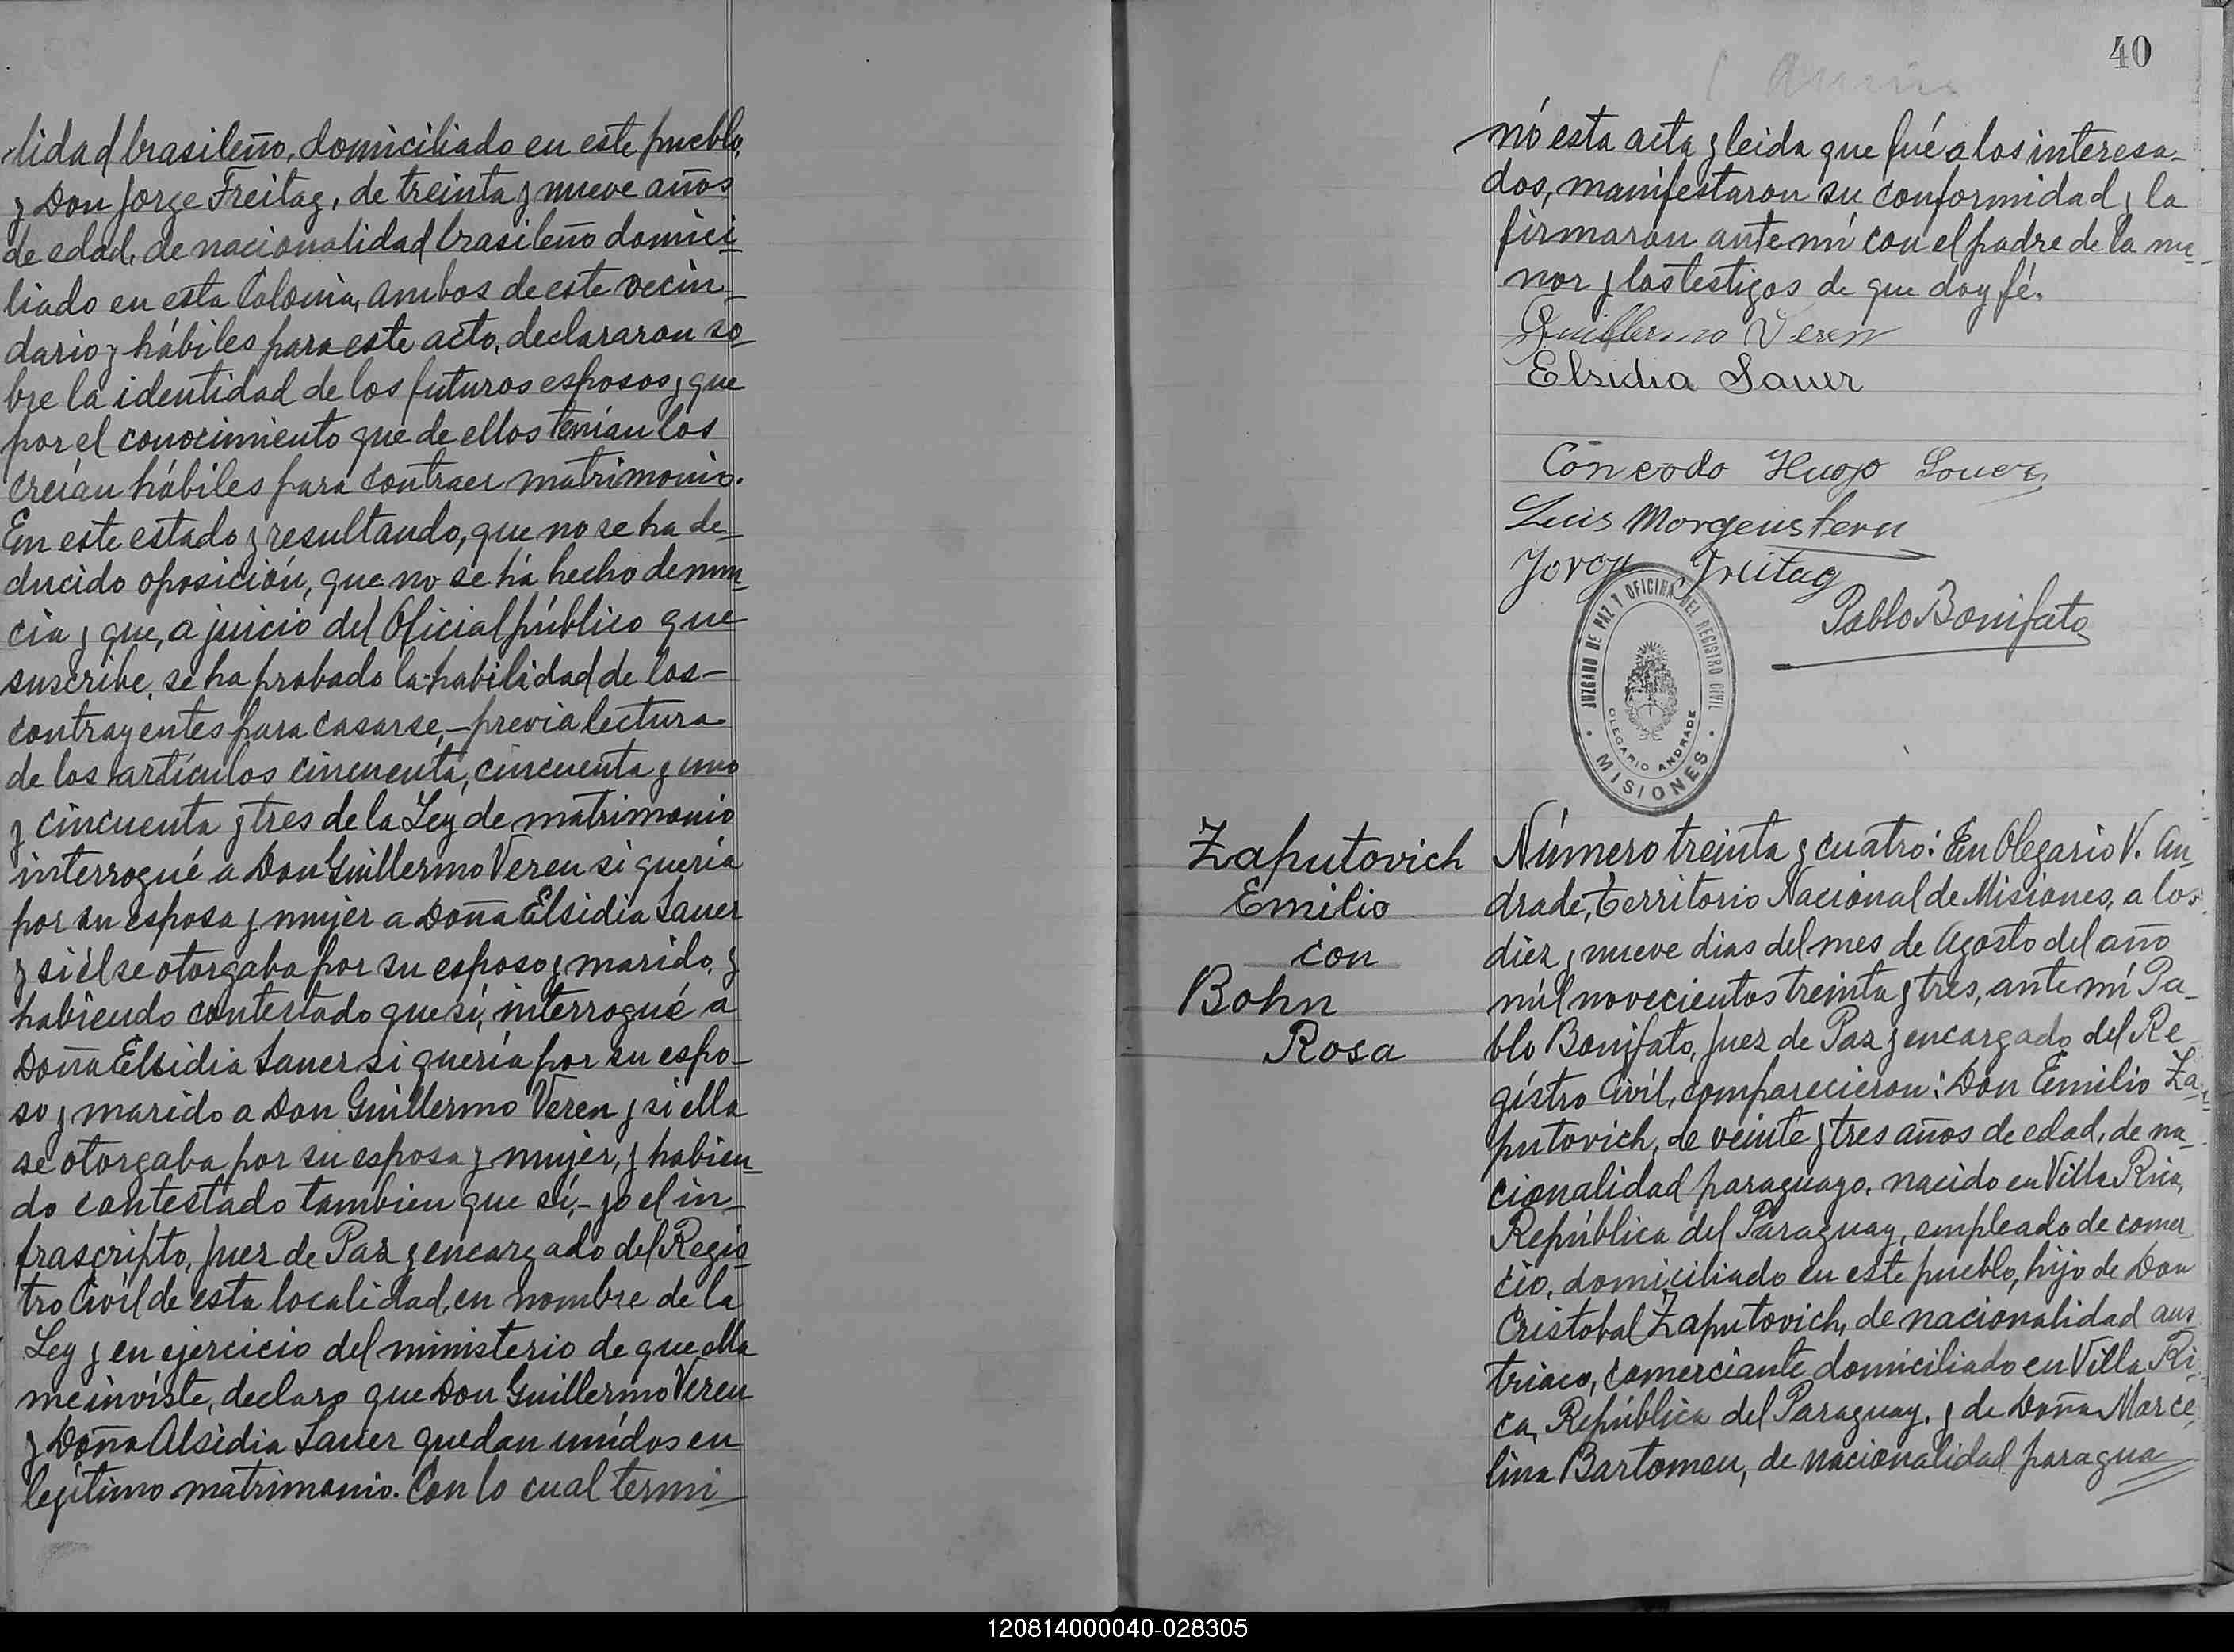 lidad brasileño, domiciliado en este pueblo,
y Don Jorge Freitag, de treinta y nueve años
de edad, de nacionalidad brasileño domici-
liado en esta Colonia, ambos de este vecin-
dario y hábiles para este acto, declararon so-
bre la identidad de los futuros esposos y que
por el conocimiento que de ellos tenían los
creían hábiles para contraer matrimonio.
En este estado y resultando, que no se ha de-
ducido oposición, que no se há hecho denun-
cia y que, a juicio del Oficial público que
suscribe, se ha probado la habilidad de los-
contrayentes para casarse,-previa lectura
de los artículos cincuenta, cincuenta y uno
y cincuenta y tres de la Ley de matrimonio
interrogué a Don Guillermo Veren si quería
por su esposa y mujer a Doña Elsidia Sauer
y si él se otorgaba por su esposo y marido, y
habiendo contestado que sí, interrogué a
Doña Elsidia Sauer si quería por su espo-
so y marido a Don Guillermo Veren y si ella
se otorgaba por su esposa y mujer, y habien-
do contestado tambien que sí,- yo el in-
frascripto, Juez de Paz y encargado del Regis-
tro Civíl de esta localidad, en nombre de la
Ley y en ejercicio del ministerio de que ella
me invíste, declaro que Don Guillermo Veren
y Doña Alsidia Sauer quedan unídos en
legítimo matrimonio. Con lo cual termi
40
nó esta acta y leida que fué a los interesa-
dos, manifestaron su conformidad y la
firmaron ante mí con el padre de la me-
nor y los testigos de que doy fé.
Guillermo Veren
Elsidia Sauer
Conrodo Hugo Souer
Luis Morgenstern
Jorge Freitag
Pablo Bonifato
JUZGADO DE PAZ Y OFICINA DEL REGISTRO CIVIL
OLEGARIO ANDRADE
MISIONES
Zaputovich
Emilio
con
Bohn
Rosa
Número treinta y cuatro: En Olegario V. An-
drade, Territorio Nacional de Misiones, a los
diez y nueve dias del mes de Agosto del año
mil novecientos treinta y tres, ante mí Pa-
blo Bonifato, Juez de Paz y encargado del Re-
gístro Civíl, comparecieron: Don Emilio Za-
putovich, de veinte y tres años de edad, de na-
cionalidad paraguayo, nacido en Villa Rica,
República del Paraguay, empleado de comer
cio, domiciliado en este pueblo, hijo de Don
Cristobal Zaputovich, de nacionalidad aus
triaco, comerciante domiciliado en Villa Ri-
ca, República del Paraguay, y de Doña Marce-
lina Bartomeu, de nacionalidad paragua
120814000040-028305